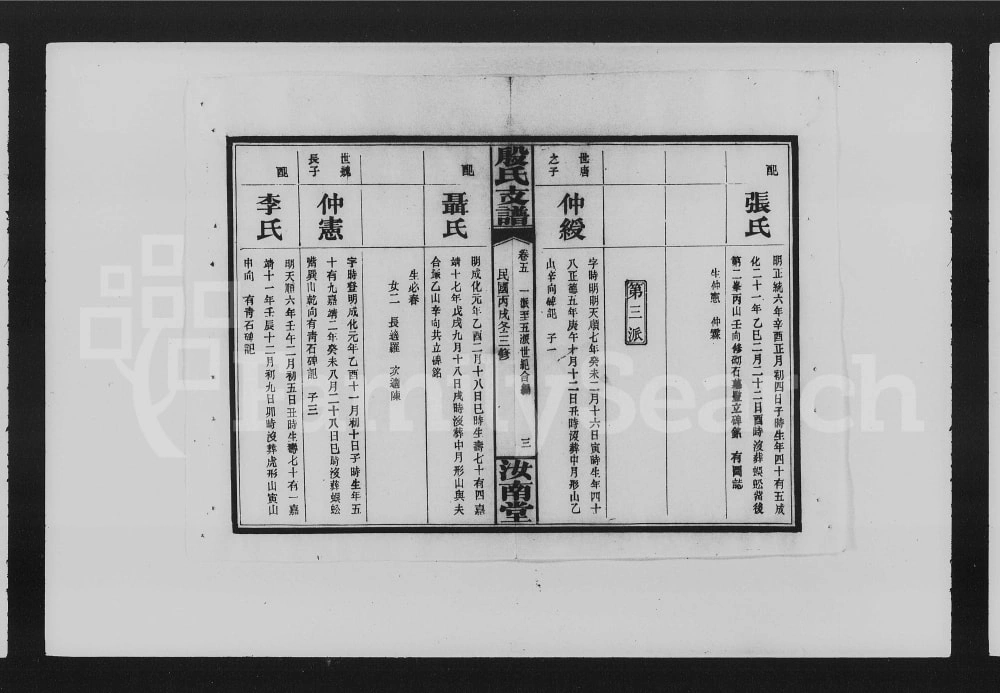 配
張氏
明正統六年辛酉正月初四日子時生年四十有五成
化二十一年乙巳二月二十二日酉時沒葬蜈蚣嘴後
第二峯丙山壬向修砌石墓豎立碑銘 有圖誌
生仲憲 仲霖
第三派
世唐
之子
仲綬
字時明明天順七年癸未二月十六日寅時生年四十
八正德五年庚午才月十二日丑時沒葬中月形山乙
山辛向碑記 子一
殷氏支譜
卷五 一派至五派世紀合編 三
民國丙戌冬三修
汝南堂
配
聶氏
明成化元年乙酉二月十八日巳時生壽七十有四嘉
靖十七年戊戌九月十八日戌時沒葬中月形山與夫
合塚乙山辛向共立碑銘
生必春
女二 長適羅 次適陳
世魏
長子
仲憲
字時登明成化元年乙酉十一月初十日子時生年五
十有九嘉靖二年癸未八月二十八日巳時沒葬蜈蚣
嘴巽山乾向有靑石碑記 子三
配
李氏
明天順六年壬午二月初五日丑時生壽七十有一嘉
靖十一年壬辰十二月初九日卯時沒葬虎形山寅山
申向 有靑石碑記
FamilySearch